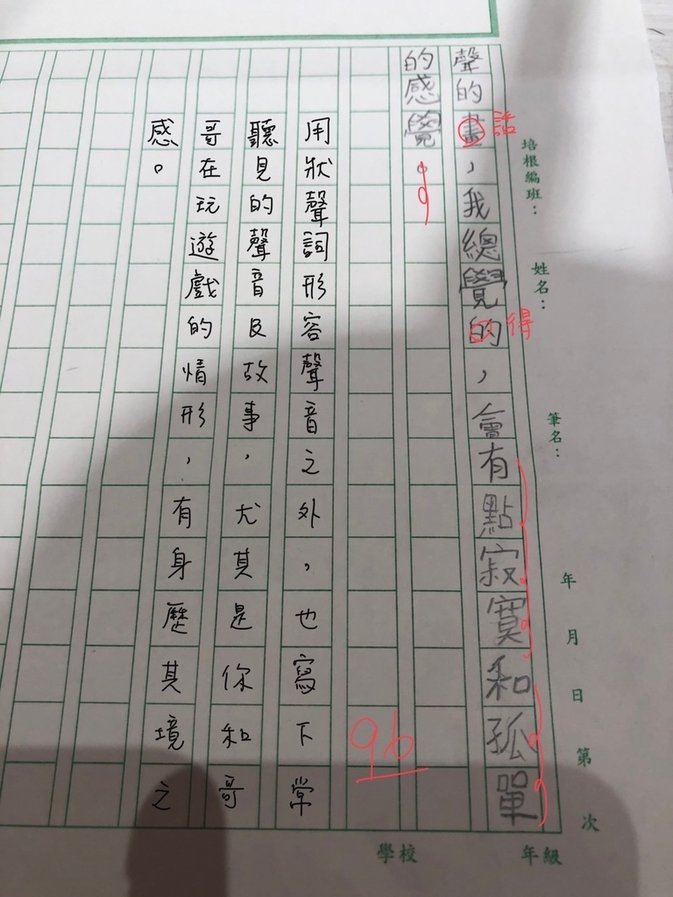 培根編班：
姓名：
筆名：
年 月 日 第 次
年級
學校
聲的畫，我總覺的，會有點寂寞和孤單
話
得
的感覺。
96
用狀聲詞形容聲音之外，也寫下常
聽見的聲音及故事，尤其是你和哥
哥在玩遊戲的情形，有身歷其境之
感。